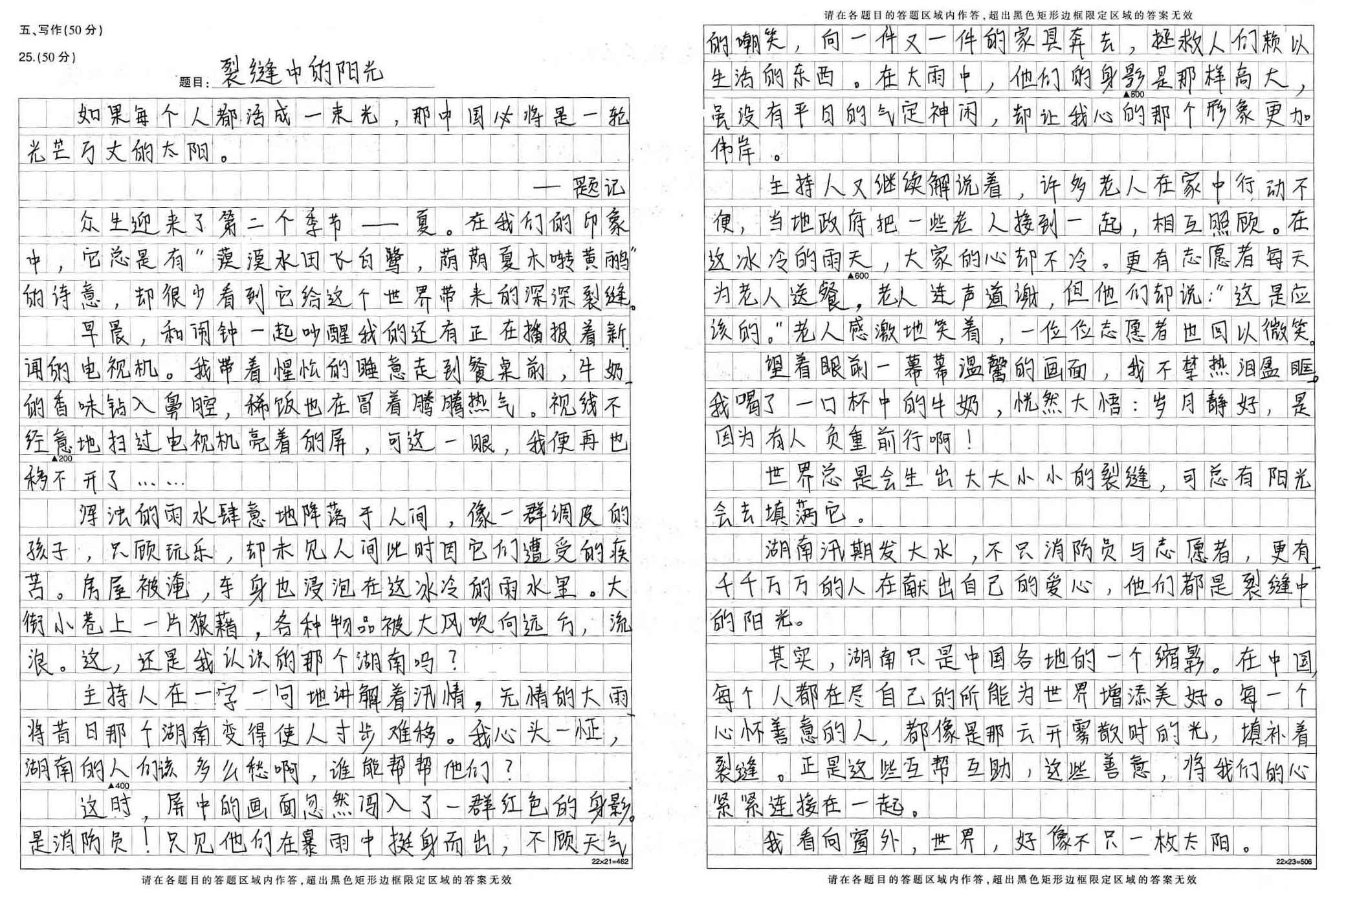 五、写作(50分)
25.(50分)
题目: 裂缝中的阳光
如果每个人都活成一束光，那中国必将是一轮
光芒万丈的太阳。
— 题记
众生迎来了第二个季节——夏。在我们的印象
中，它总是有“漠漠水田飞白鹭，荫荫夏木啭黄鹂”
的诗意，却很少看到它给这个世界带来的深深裂缝。
早晨，和闹钟一起吵醒我的还有正在播报着新
闻的电视机。我带着惺忪的睡意走到餐桌前，牛奶
的香味钻入鼻腔，稀饭也在冒着腾腾热气。视线不
经意地扫过电视机亮着的屏，可这一眼，我便再也
▲200
移不开了……
浑浊的雨水肆意地降落于人间，像一群调皮的
孩子，只顾玩乐，却未见人间此时因它们遭受的疾
苦。房屋被淹，车身也浸泡在这冰冷的雨水里。大
街小巷上一片狼藉，各种物品被大风吹向远方，流
浪。这，还是我认识的那个湖南吗？
主持人在一字一句地讲解着汛情。无情的大雨
将昔日那个湖南变得使人寸步难移。我心头一怔，
湖南的人们该多么愁啊，谁能帮帮他们？
▲400
这时，屏中的画面忽然闯入了一群红色的身影。
是消防员！只见他们在暴雨中挺身而出，不顾天气
22×21=462
请在各题目的答题区域内作答，超出黑色矩形边框限定区域的答案无效
请在各题目的答题区域内作答，超出黑色矩形边框限定区域的答案无效
的嘲笑，向一件又一件的家具奔去，拯救人们赖以
生活的东西。在大雨中，他们的身影是那样高大，
▲500
虽没有平日的气定神闲，却让我心的那个形象更加
伟岸。
主持人又继续解说着，许多老人在家中行动不
便，当地政府把一些老人接到一起，相互照顾。在
这冰冷的雨天，大家的心却不冷。更有志愿者每天
▲600
为老人送餐，老人连声道谢，但他们却说：“这是应
该的。”老人感激地笑着，一位位志愿者也回以微笑。
望着眼前一幕幕温馨的画面，我不禁热泪盈眶。
我喝了一口杯中的牛奶，恍然大悟：岁月静好，是
因为有人负重前行啊！
世界总是会生出大大小小的裂缝，可总有阳光
会去填满它。
湖南汛期发大水，不只消防员与志愿者，更有
千千万万的人在献出自己的爱心，他们都是裂缝中
的阳光。
其实，湖南只是中国各地的一个缩影。在中国，
每个人都在尽自己的所能为世界增添美好。每一个
心怀善意的人，都像是那云开雾散时的光，填补着
裂缝。正是这些互帮互助，这些善意，将我们的心
紧紧连接在一起。
我看向窗外，世界，好像不只一枚太阳。
22×23=506
请在各题目的答题区域内作答，超出黑色矩形边框限定区域的答案无效